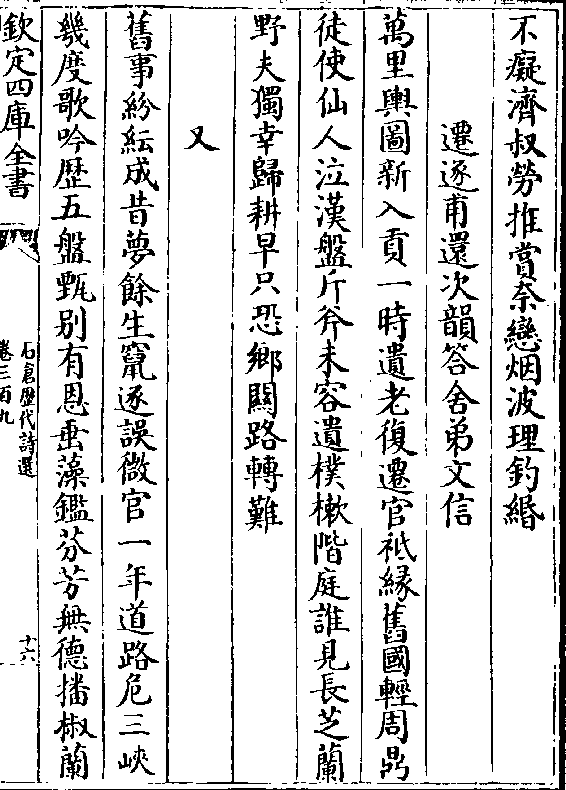 不癡濟叔勞推賞奈戀烟波理釣緡
遷逐甫還次韻答舍弟文信
萬里輿圖新入貢一時遺老復遷官祗緣舊國輕周鼎
徒使仙人泣漢盤斤斧未容遺樸樕階庭誰見長芝蘭
野夫獨幸歸耕早只恐鄉關路轉難
又
舊事紛紜成昔夢餘生竄逐誤微官一年道路危三峽
幾度歌吟歴五盤甄别有恩垂藻鑑芬芳無德播椒蘭
欽定四庫全書
石倉歴代詩選
卷三百九
十六